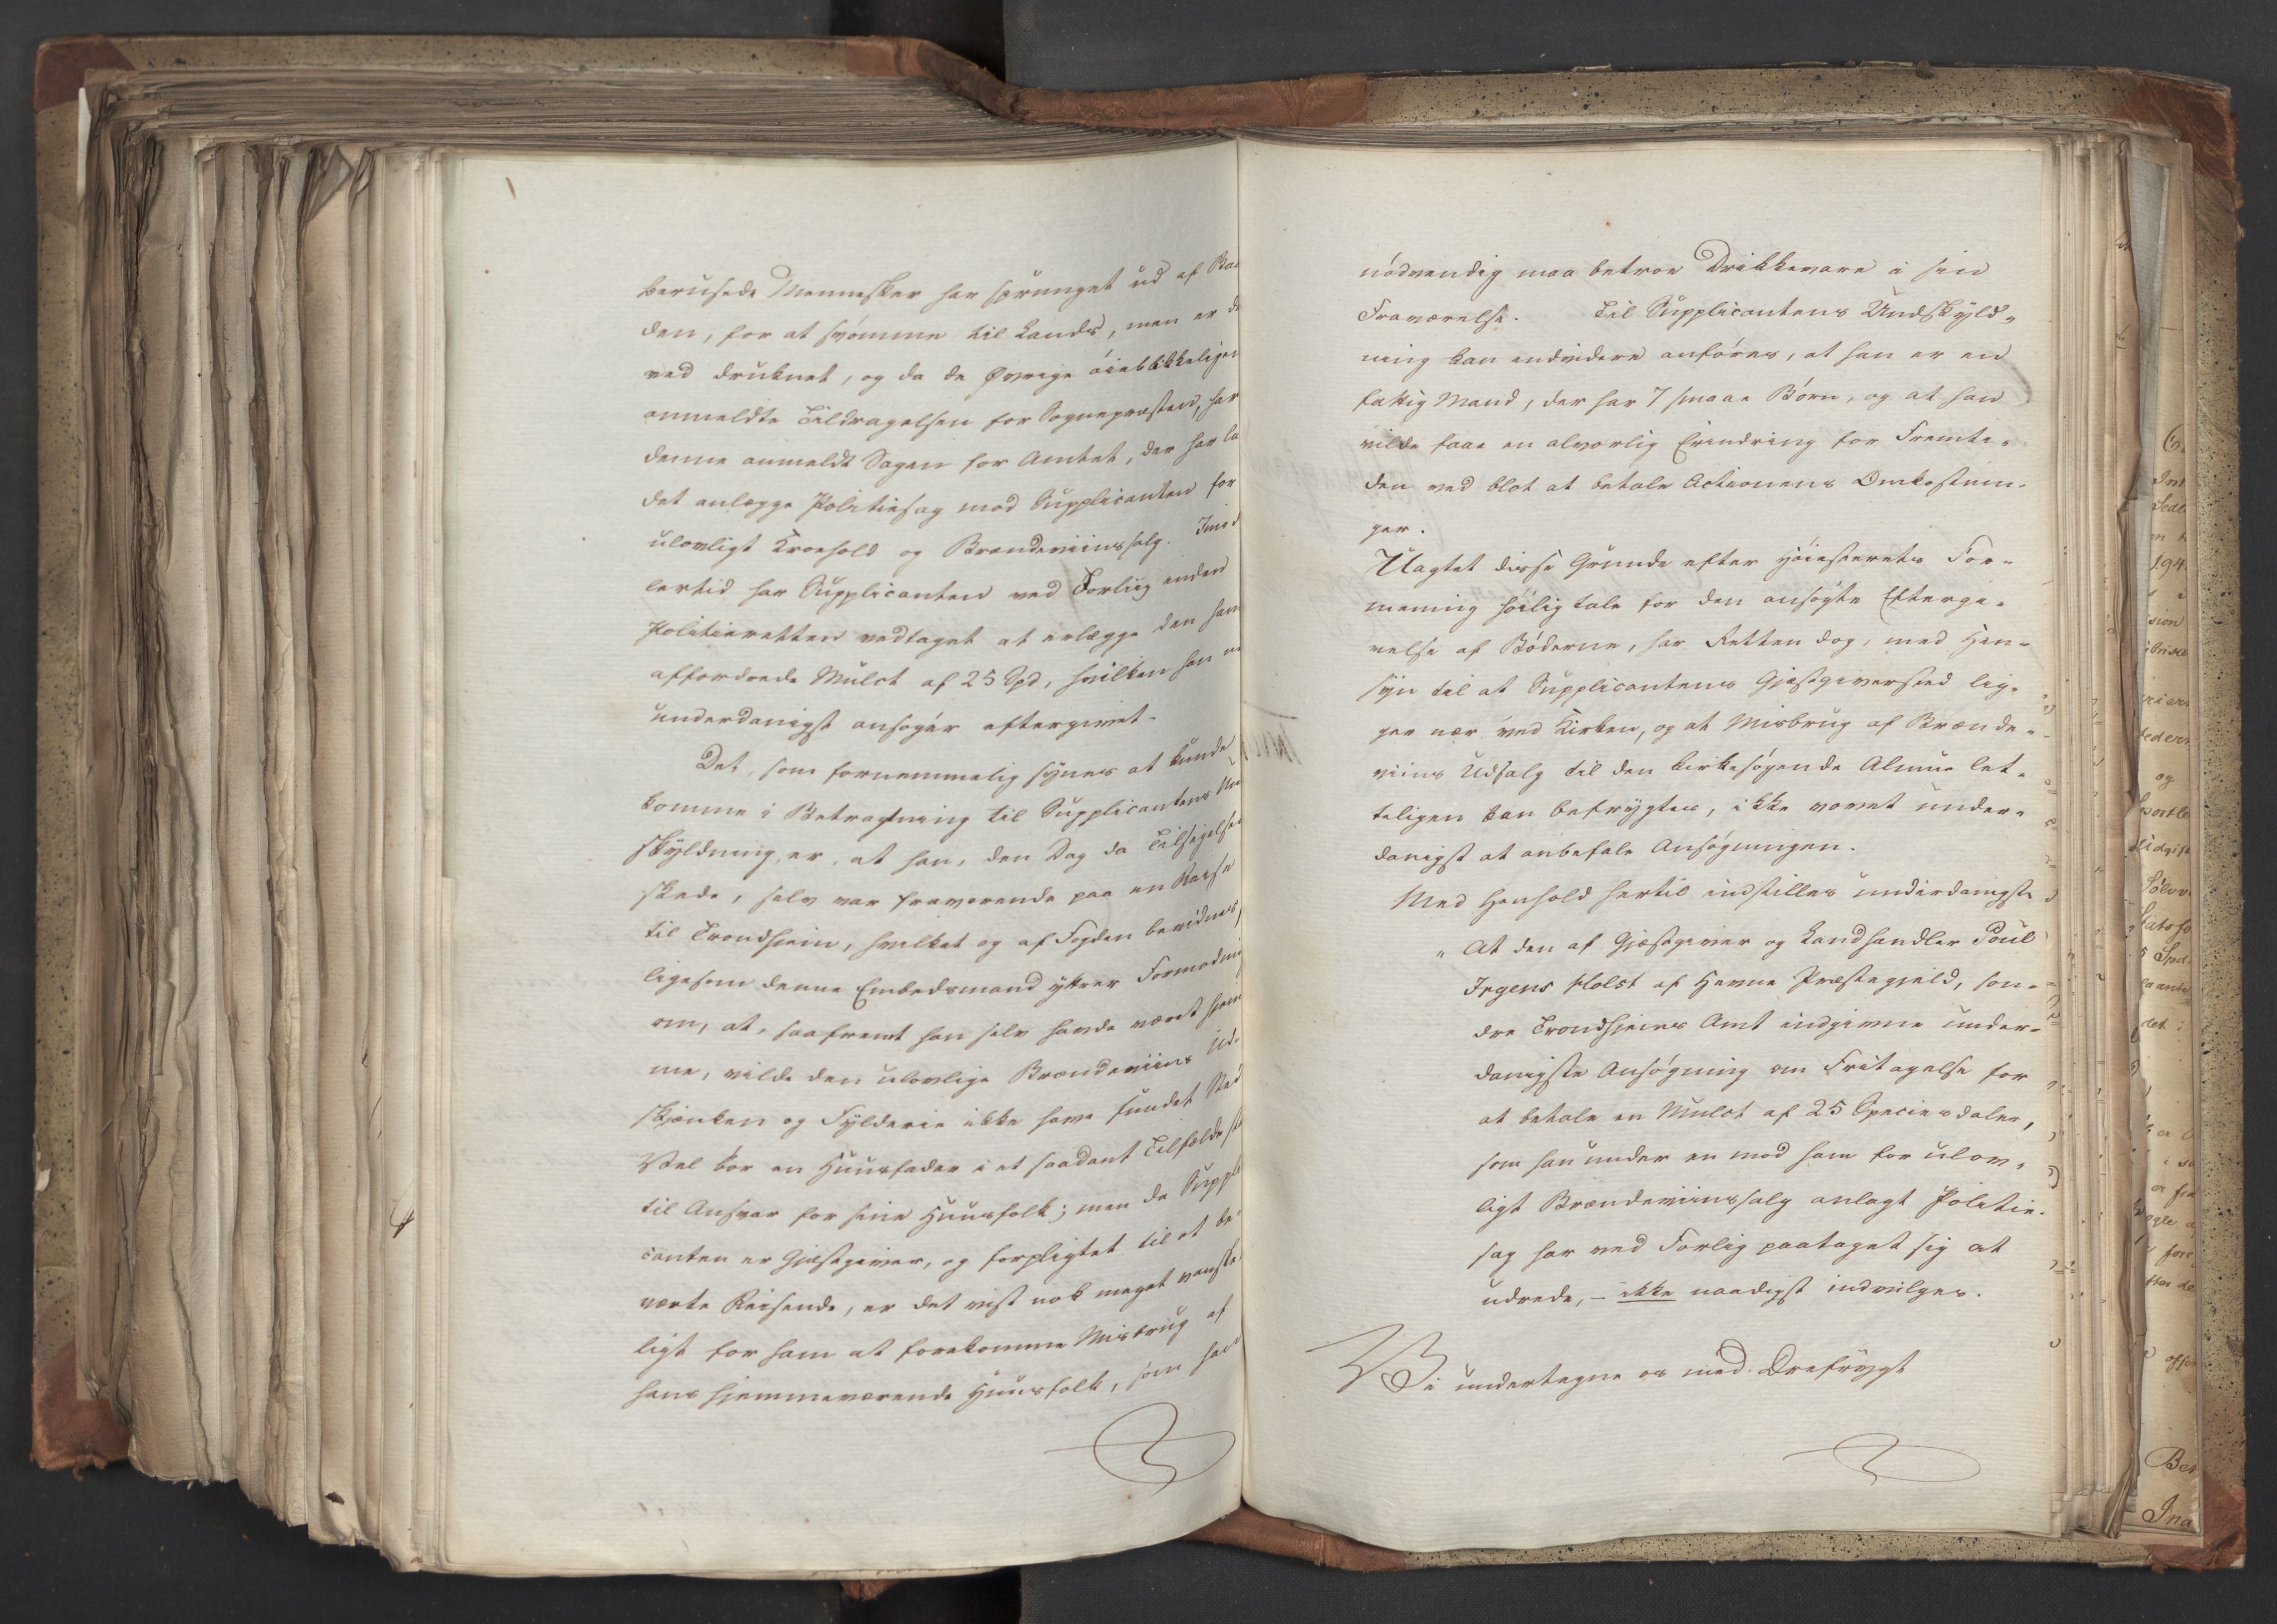 berusede Mennesker har sprunget ud af Baa
den, for at svömme til Lands, men er der
ved druknet, og da de Øvrige öieblikkeligen
anmeldte Tildragelsen for Sognepræsten, har
denne anmeldt Sagen for Amtet, der har la
det anlægge Politiesag mod Supplicanten for
ulovligt Kroehold og Brændeviinssalg. Imid
lertid har Supplicanten ved Forliig inden
Politieretten vedtaget at erlægge den ham
affordrede Mulct af 25 Spd, hvilken han nu
underdanigst ansöger eftergivet.
Det, som fornemmelig synes at kunde
komme i Betragtning til Supplicantens Und
skyldning, er, at han, den Dag da Tilsigelsen
skede, selv var fraværende paa en Reise
til Trondhjem, hvilket og af Fogden bevidnes,
ligesom denne Embedsmand yttrer Formodning
om, at, saafremt han selv havde været hjem
me, vilde den ulovlige Brændeviins Ud-
skjænken og Fylderie ikke have fundet Sted
Vel bör en Huusfader i et saadant Tilfælde st
til Ansvar for sine Huusfolk; men da Suppli
canten er Gjæstgiver, og forpligtet til at be-
værte Reisende, er det vist nok meget vanske
ligt for ham at forekomme Misbrug af
hans hjemmeværende Huusfolk, som han
nödvendig maa betroe Drikkevare i sin
Fraværelse. Til Supplicantens Undskyld-
ning kan endvidere anföres, at han er en
fattig Mand, der har 7 smaae Börn, og at han
vilde faae en alvorlig Erindring for Fremti-
den ved blot at betale Actionens Omkostnin-
ger.
Uagtet disse Grunde efter Höiesterets For-
mening höilig tale for den ansögte Eftergi-
velse af Böderne, har Retten dog, med Hen-
syn til at Supplicantens Gjæstgiversted lig-
ger nær ved Kirken, og at Misbrug af Brænde-
viins Udsalg til den kirkesögende Almue let-
teligen kan befrygtes, ikke vovet under-
danigst at anbefale Ansögningen.
Med Henhold hertil indstilles underdanigst
"At den af Gjæstgiver og Landhandler Poul
Irgens Holst af Hevne Præstegjeld, son-
dre Trondhjems Amt indgivne under-
danigste Ansögning om Fritagelse for
at betale en Mulct af 25 Speciesdaler,
som han under en mod ham for ulov-
ligt Brændeviinssalg anlagt Politie-
sag har ved Forlig paataget sig at
udrede, - ikke naadigst indvilges.
Vi undertegne os med Ærefrygt